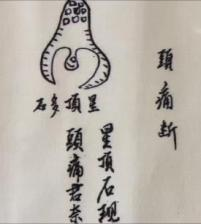 頭痛断
星頂多石
星頂石現
頭痛君奈